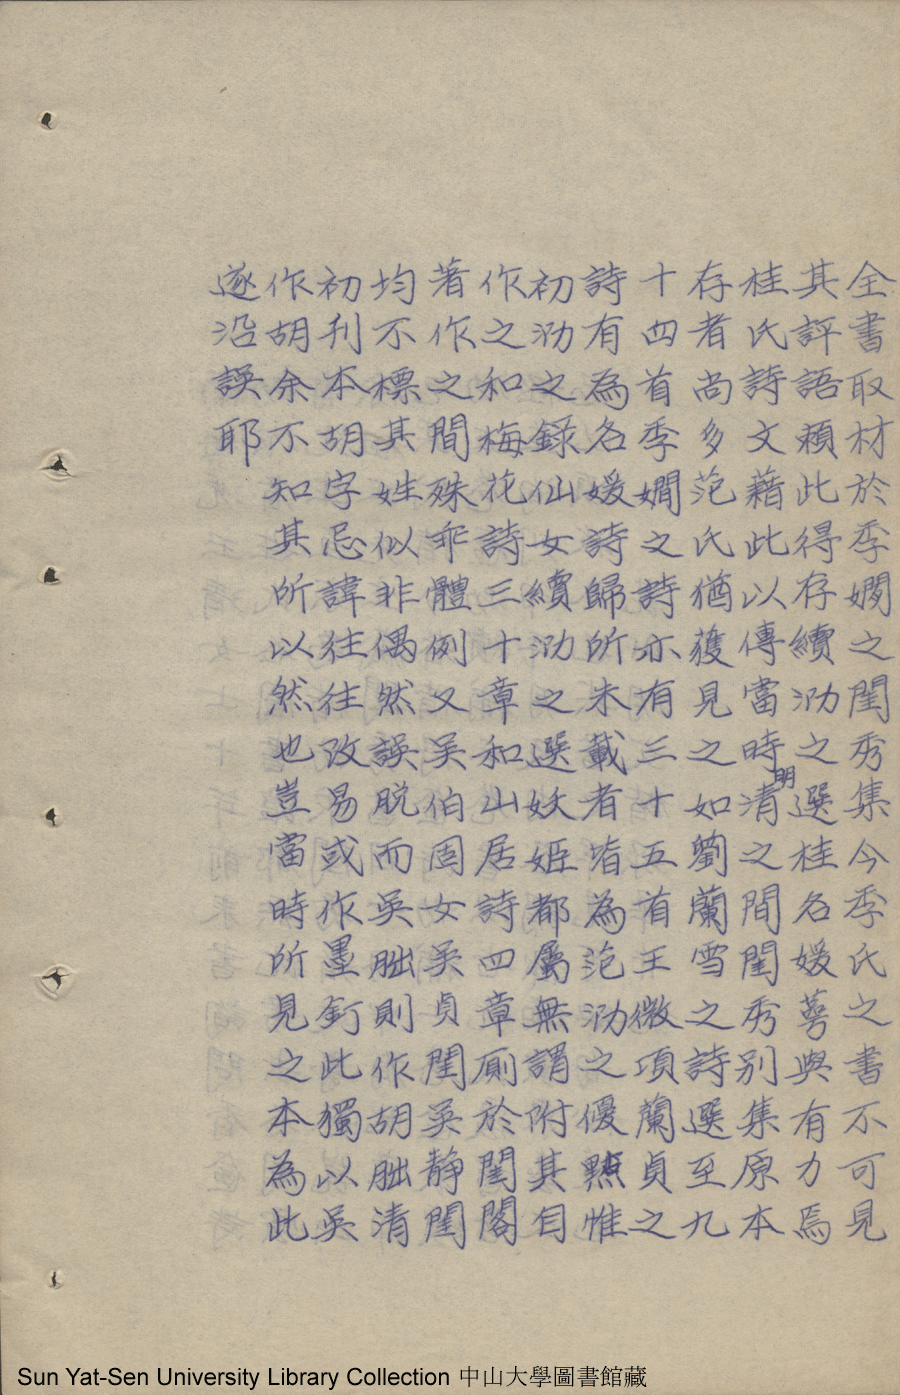 全書取材於季嫻之閨秀集今季氏之書不可見
其評語賴此得存續泐之選桂名媛蕚與有力焉
桂氏詩文藉此以傳當時明清之間閨秀別集原本
存者尚多范氏猶獲見之如劉蘭雪之詩選至九
十四首季嫻之詩亦有三十五首王微項蘭貞之
詩有為名媛詩歸所未載者皆為范泐之優點惟
初泐之錄仙女續泐之選妖姬都屬無謂附其自
作之和梅花詩三十章和山居詩四章厠於閨閣
著作之間殊乖體例又吳伯固女吳貞閨吳靜閨
均不標其姓似非偶然誤脫而吳朏則作胡朏清
初刊本胡字忌諱往往改易或作墨釘此獨以吳
作胡余不知其所以然也豈當時所見之本為此
遂沿誤耶
Sun Yat-Sen University Library Collection 中山大學圖書館藏